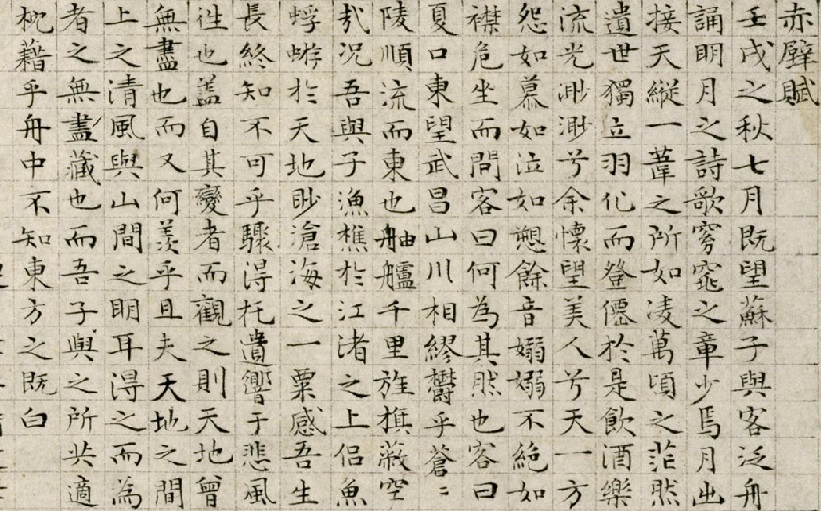 赤壁賦
壬戌之秋七月既望蘇子與客泛舟
誦明月之詩歌窈窕之章少焉月出
接天縱一葦之所如凌萬頃之茫然
遺世獨立羽化而登僊於是飲酒樂
流光渺渺兮余懷望美人兮天一方
怨如慕如泣如愬餘音嫋嫋不絕如
襟危坐而問客曰何為其然也客曰
夏口東望武昌山川相繆鬱乎蒼〻
陵順流而東也舳艫千里旌旗蔽空
哉況吾與子漁樵於江渚之上侶魚
蜉蝣於天地眇滄海之一粟感吾生
長終知不可乎驟得托遺響于悲風
徃也蓋自其變者而觀之則天地曾
無盡也而又何羨乎且夫天地之間
上之清風與山間之明耳得之而為
者之無盡藏也而吾子與之所共適
枕藉乎舟中不知東方之既白